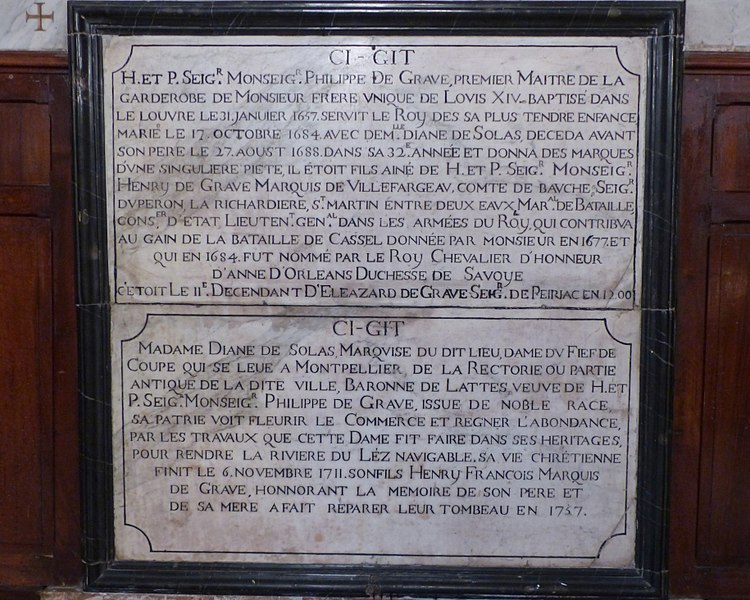 CI-GIT
H. ET P. SEIG.R MONSEIG.R PHILIPPE DE GRAVE, PREMIER MAITRE DE LA
GARDEROBE DE MONSIEUR FRERE VNIQUE DE LOVIS XIV. BAPTISÉ DANS
LE LOUVRE LE 31. JANVIER 1657. SERVIT LE ROY DES SA PLUS TENDRE ENFANCE
MARIÉ LE 17. OCTOBRE 1684. AVEC DEM.LLE DIANE DE SOLAS, DECEDA AVANT
SON PERE LE 27. AOUST 1688. DANS SA 32.E ANNÉE ET DONNA DES MARQUES
D'VNE SINGULIERE PIETE, IL ÉTOIT FILS AINÉ DE H. ET P. SEIG.R MONSEIG.R
HENRY DE GRAVE MARQUIS DE VILLEFARGEAV, COMTE DE BAVCHE, SEIG.R
DVPERON, LA RICHARDIERE, S.T MARTIN ENTRE DEUX EAVX, MAR.AL DE BATAILLE,
CONS.ER D'ETAT LIEUTEN.T GEN.AL DANS LES ARMÉES DU ROY, QUI CONTRIBVA
AU GAIN DE LA BATAILLE DE CASSEL DONNÉE PAR MONSIEUR EN 1677. ET
QUI EN 1684. FUT NOMMÉ PAR LE ROY CHEVALIER D'HONNEUR
D'ANNE D'ORLEANS DUCHESSE DE SAVOYE
C'ETOIT LE 11.E DECENDANT D'ELEAZARD DE GRAVE SEIG.R DE PEIRIAC EN 1200
CI-GIT
MADAME DIANE DE SOLAS, MARQVISE DU DIT LIEU, DAME DV FIEF DE
COUPE QUI SE LEUE A MONTPELLIER, DE LA RECTORIE OU PARTIE
ANTIQUE DE LA DITE VILLE, BARONNE DE LATTES, VEUVE DE H. ET
P. SEIG.R MONSEIG.R PHILIPPE DE GRAVE, ISSUE DE NOBLE RACE,
SA PATRIE VOIT FLEURIR LE COMMERCE ET REGNER L'ABONDANCE,
PAR LES TRAVAUX QUE CETTE DAME FIT FAIRE DANS SES HERITAGES,
POUR RENDRE LA RIVIERE DU LÉZ NAVIGABLE. SA VIE CHRÉTIENNE
FINIT LE 6. NOVEMBRE 1711. SON FILS HENRY FRANCOIS MARQUIS
DE GRAVE, HONNORANT LA MEMOIRE DE SON PERE ET
DE SA MERE A FAIT RÉPARER LEUR TOMBEAU EN 1737.